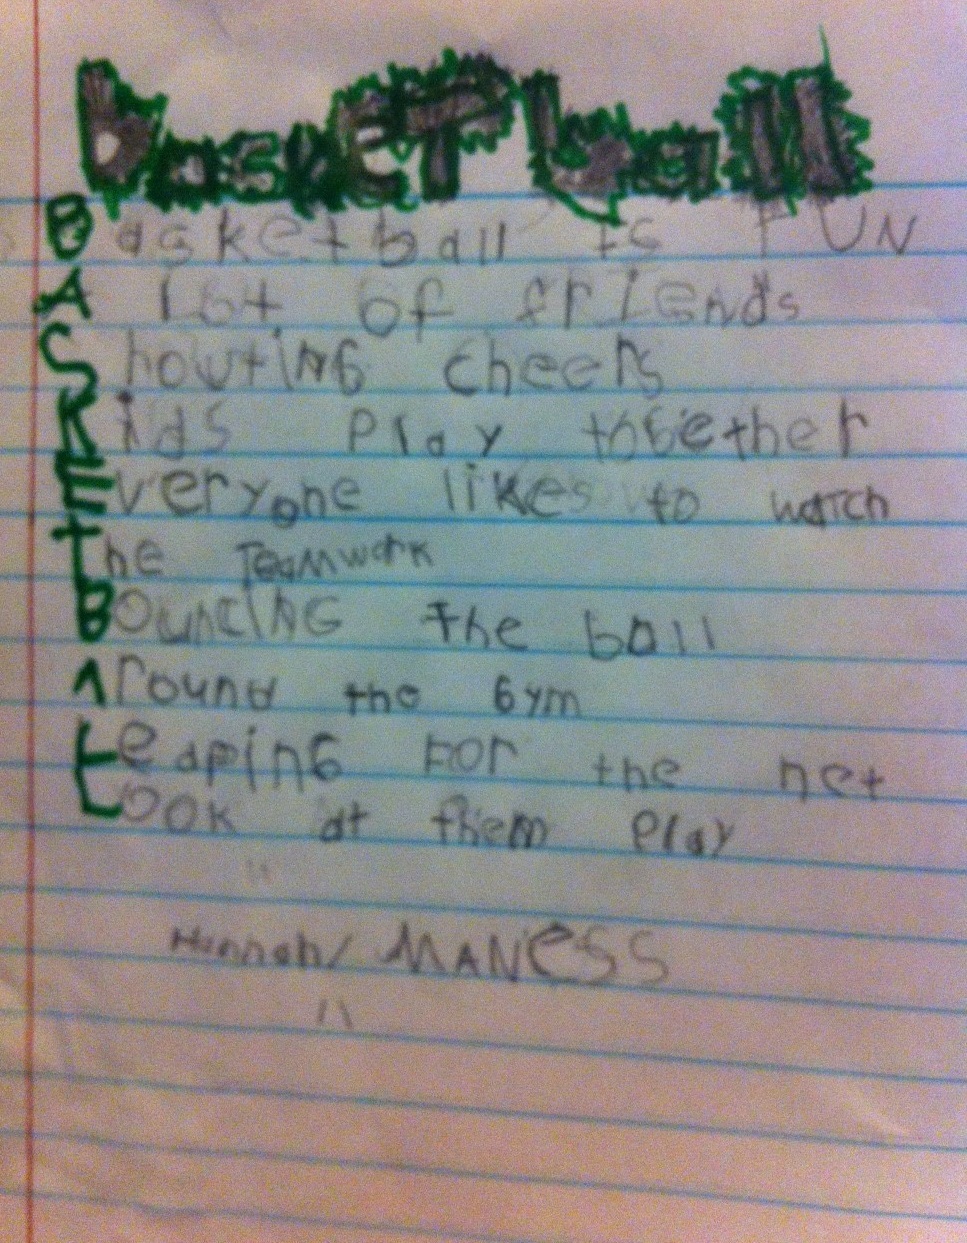 basketball
Basketball is FUN
A Lot of friends
Shouting cheers
Kids Play together
Everyone likes to watch
The Teamwork
BouncING the ball
Around the Gym
LeapinG For the net
Look at them Play
Hannah/ MANeSS